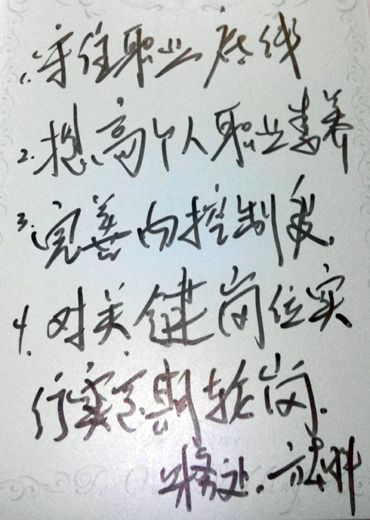 1. 守住职业底线
2. 提高个人职业素养
3. 完善内控制度.
4. 对关键岗位实
行定期轮岗.
财务处.